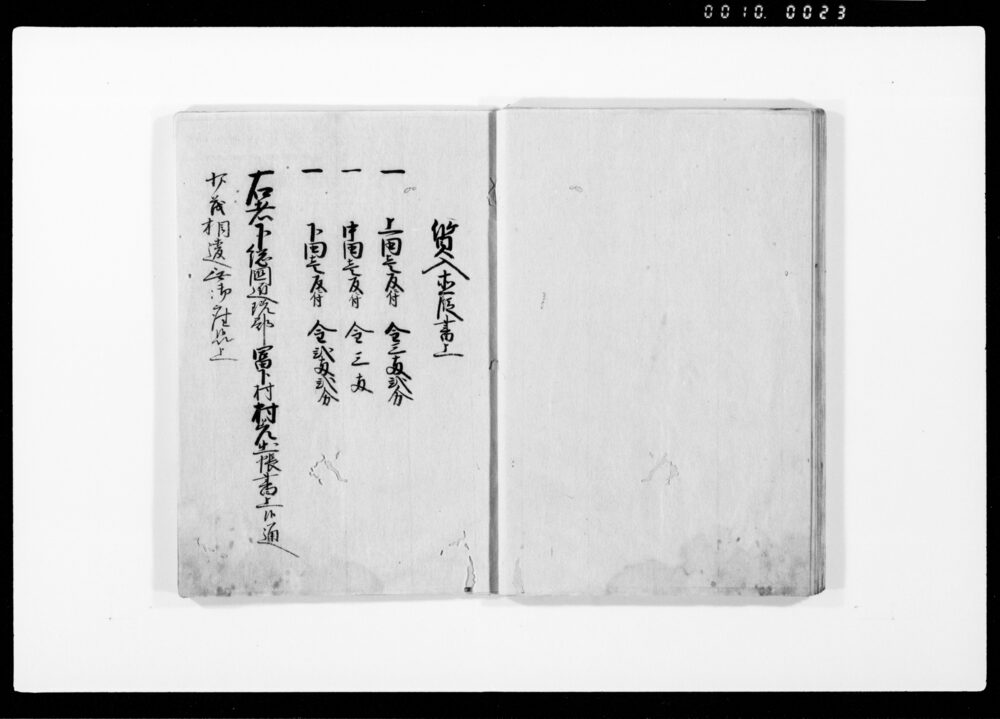 0010. 0023
質入直段書上
一 上田壱反付 金三両弐分
一 中田壱反付 金三両
一 下田壱反付 金弐両弐分
右者下総国 郡富下村村差出帳書上候通
少茂相違無御座候以上